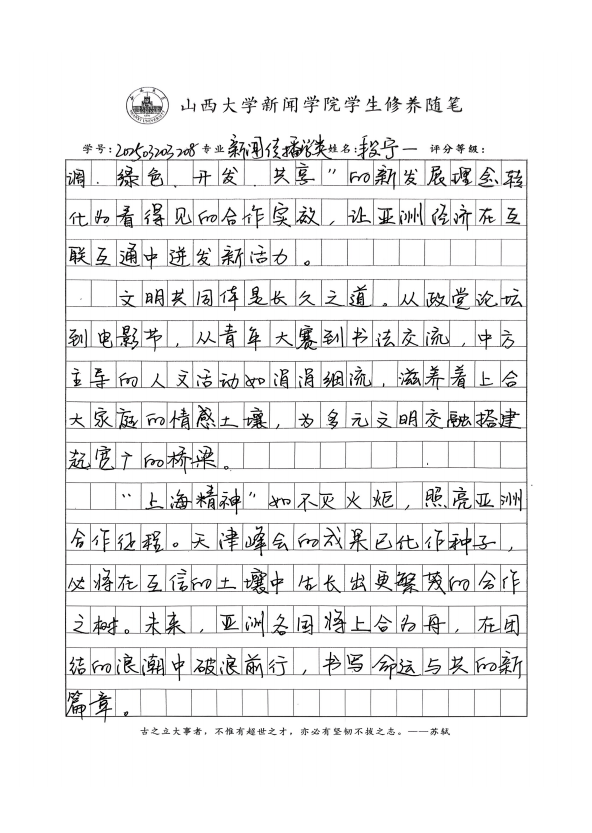 山西大学新闻学院学生修养随笔
学号:202503203208 专业 新闻传播学类 姓名:段宁一 评分等级:
调、绿色、开发、共享”的新发展理念转
化为看得见的合作实效,让亚洲经济在互
联互通中迸发新活力。
文明共同体是长久之道。从政党论坛
到电影节,从青年大赛到书法交流,中方
主导的人文活动如涓涓细流,滋养着上合
大家庭的情感土壤,为多元文明交融搭建
起宽广的桥梁。
“上海精神”如不灭火炬,照亮亚洲
合作征程。天津峰会的成果已化作种子,
必将在互信的土壤中生长出更繁茂的合作
之树。未来,亚洲各国将上合为舟,在团
结的浪潮中破浪前行,书写命运与共的新
篇章。
古之立大事者,不惟有超世之才,亦必有坚韧不拔之志。——苏轼